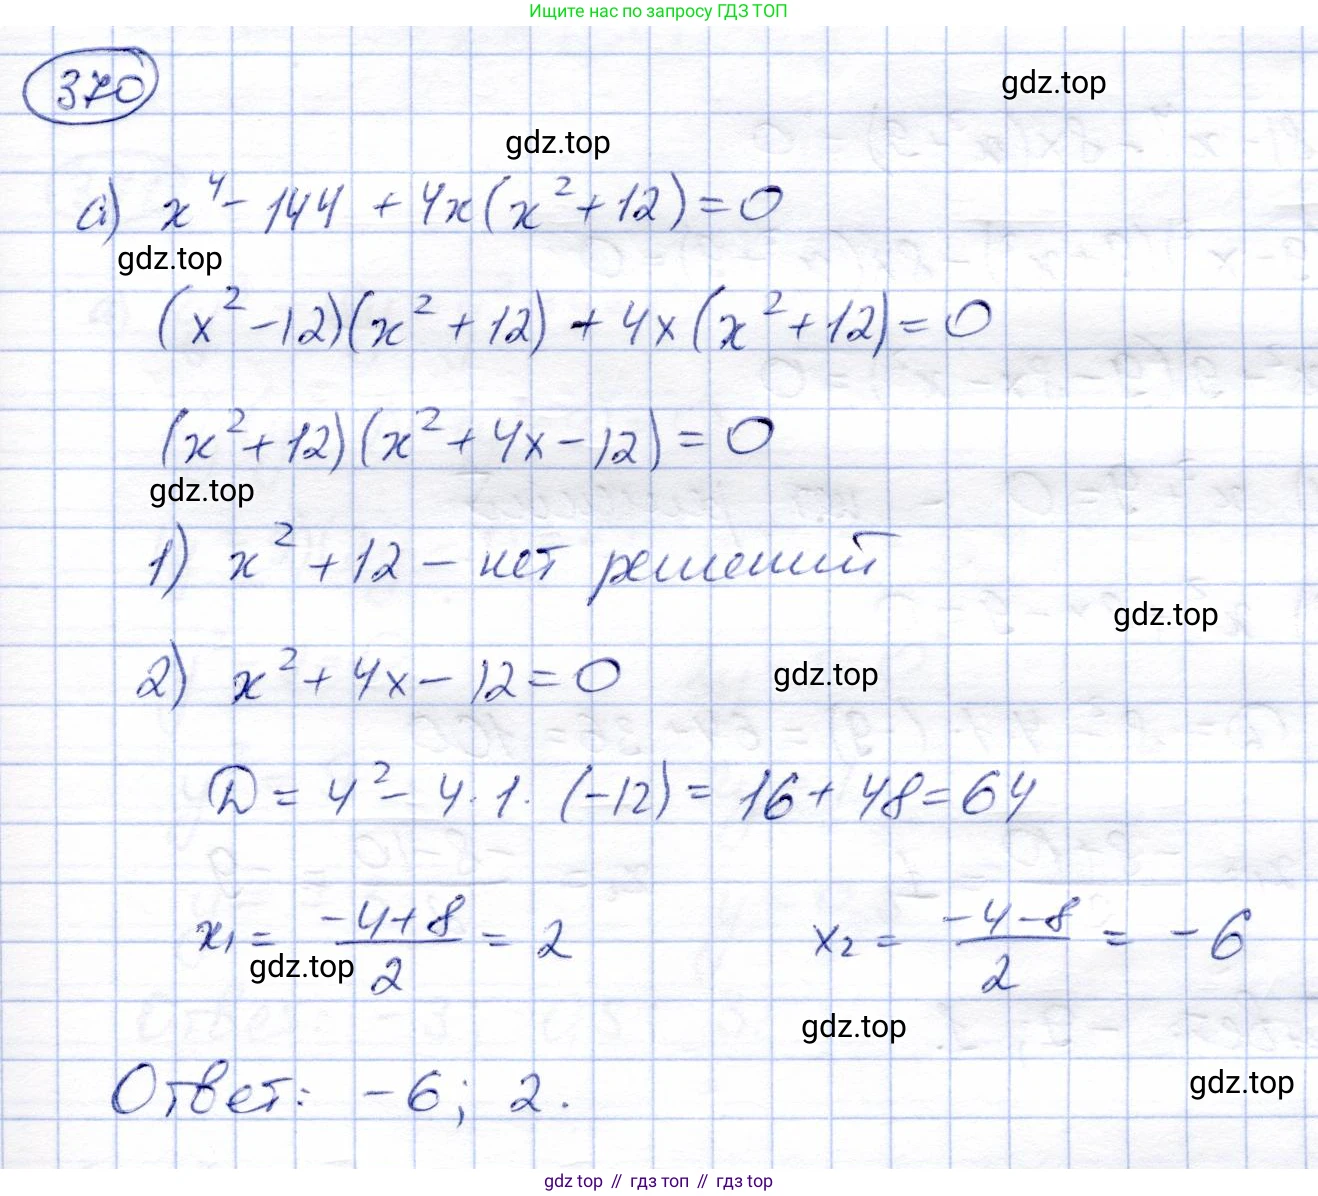 Ищите нас по запросу ГДЗ ТОП
370
gdz.top
gdz.top
а) x⁴ - 144 + 4x(x² + 12) = 0
gdz.top
(x² - 12)(x² + 12) + 4x(x² + 12) = 0
(x² + 12)(x² + 4x - 12) = 0
gdz.top
1) x² + 12 - нет решений
gdz.top
2) x² + 4x - 12 = 0
gdz.top
D = 4² - 4 · 1 · (-12) = 16 + 48 = 64
x₁ = (-4+8)/2 = 2 x₂ = (-4-8)/2 = -6
gdz.top
gdz.top
gdz.top
Ответ: -6; 2.
gdz top // гдз топ // гдз top